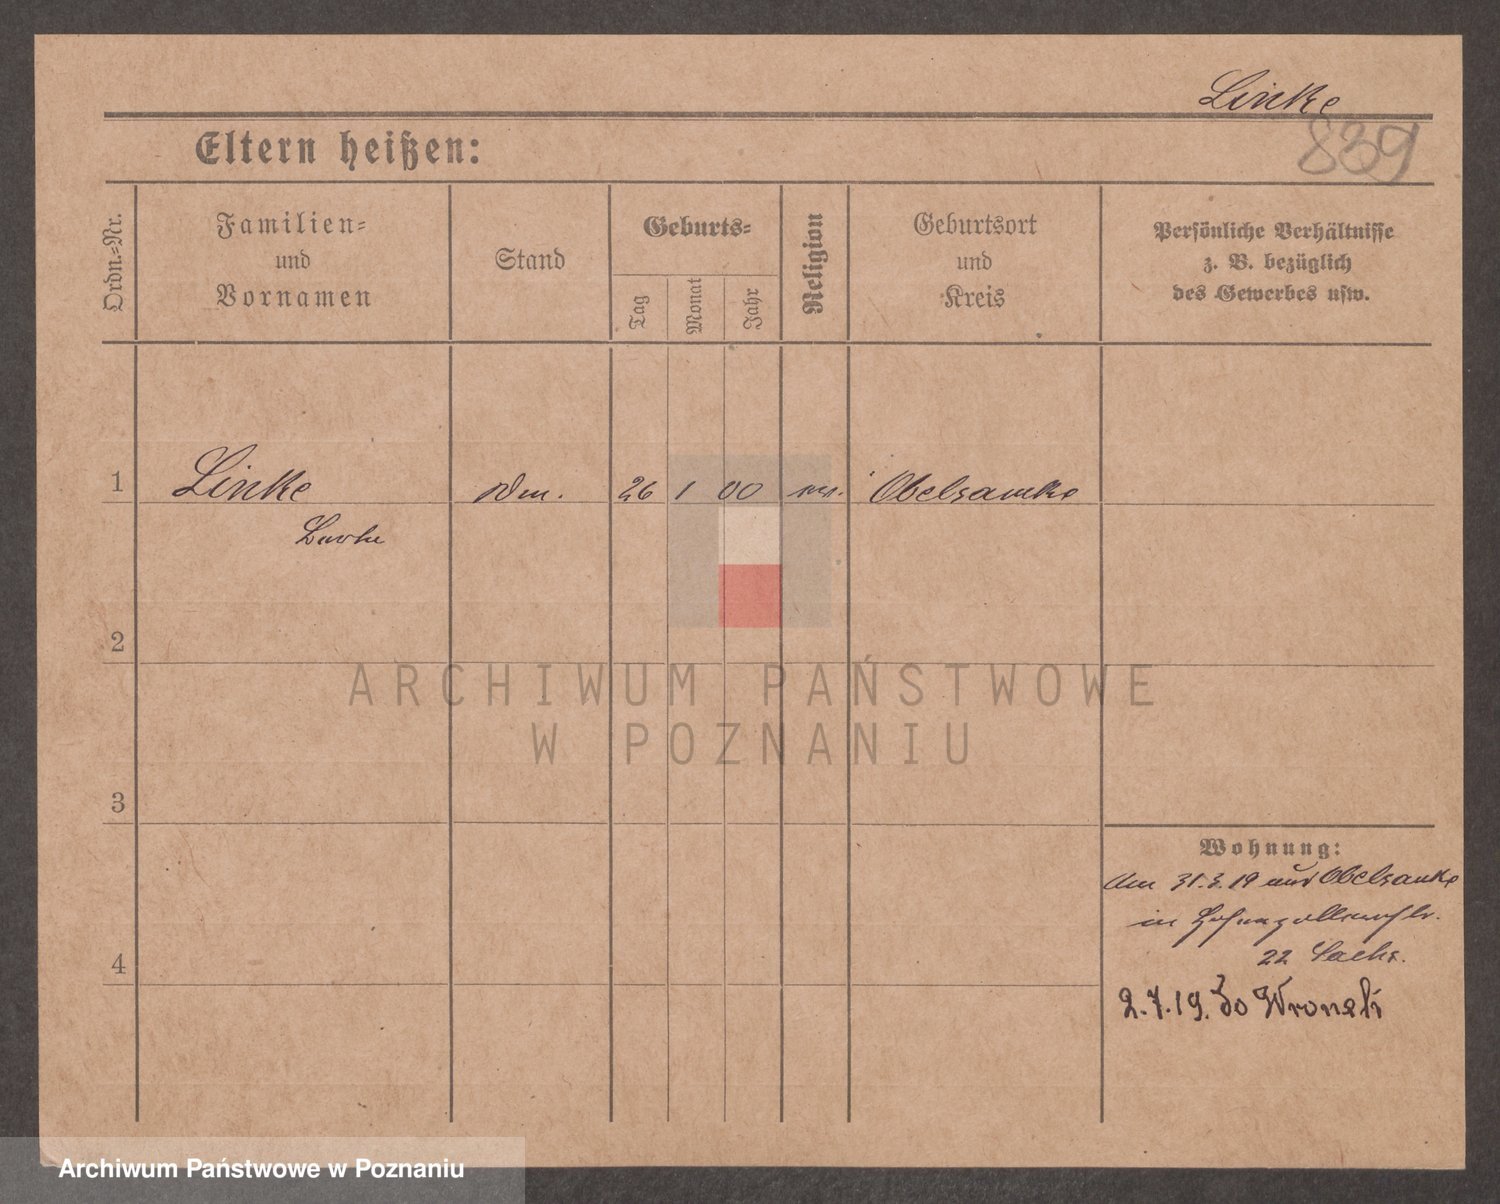 Linke
839
Eltern heißen:
Ordn.-Nr.
Familien-
und
Vornamen
Stand
Geburts-
Tag
Monat
Jahr
Religion
Geburtsort
und
Kreis
Persönliche Verhältnisse
z. B. bezüglich
des Gewerbes usw.
1
Linke
26
1
00
Obelzanke
2
ARCHIWUM PAŃSTWOWE
W POZNANIU
3
Wohnung:
Am 31.3.19 aus Obelzanke
in Hohenzollernstr.
22 Sachs.
4
2.7.19. do Wronek
Archiwum Państwowe w Poznaniu